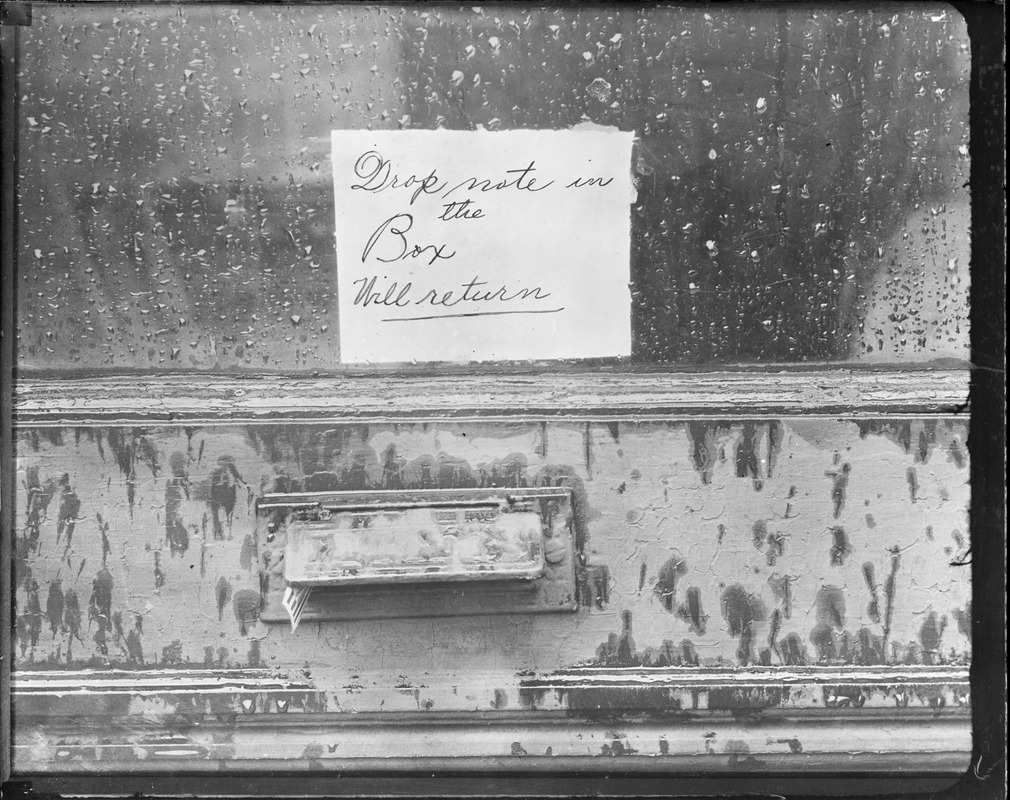 Drop note in
the
Box
Will return